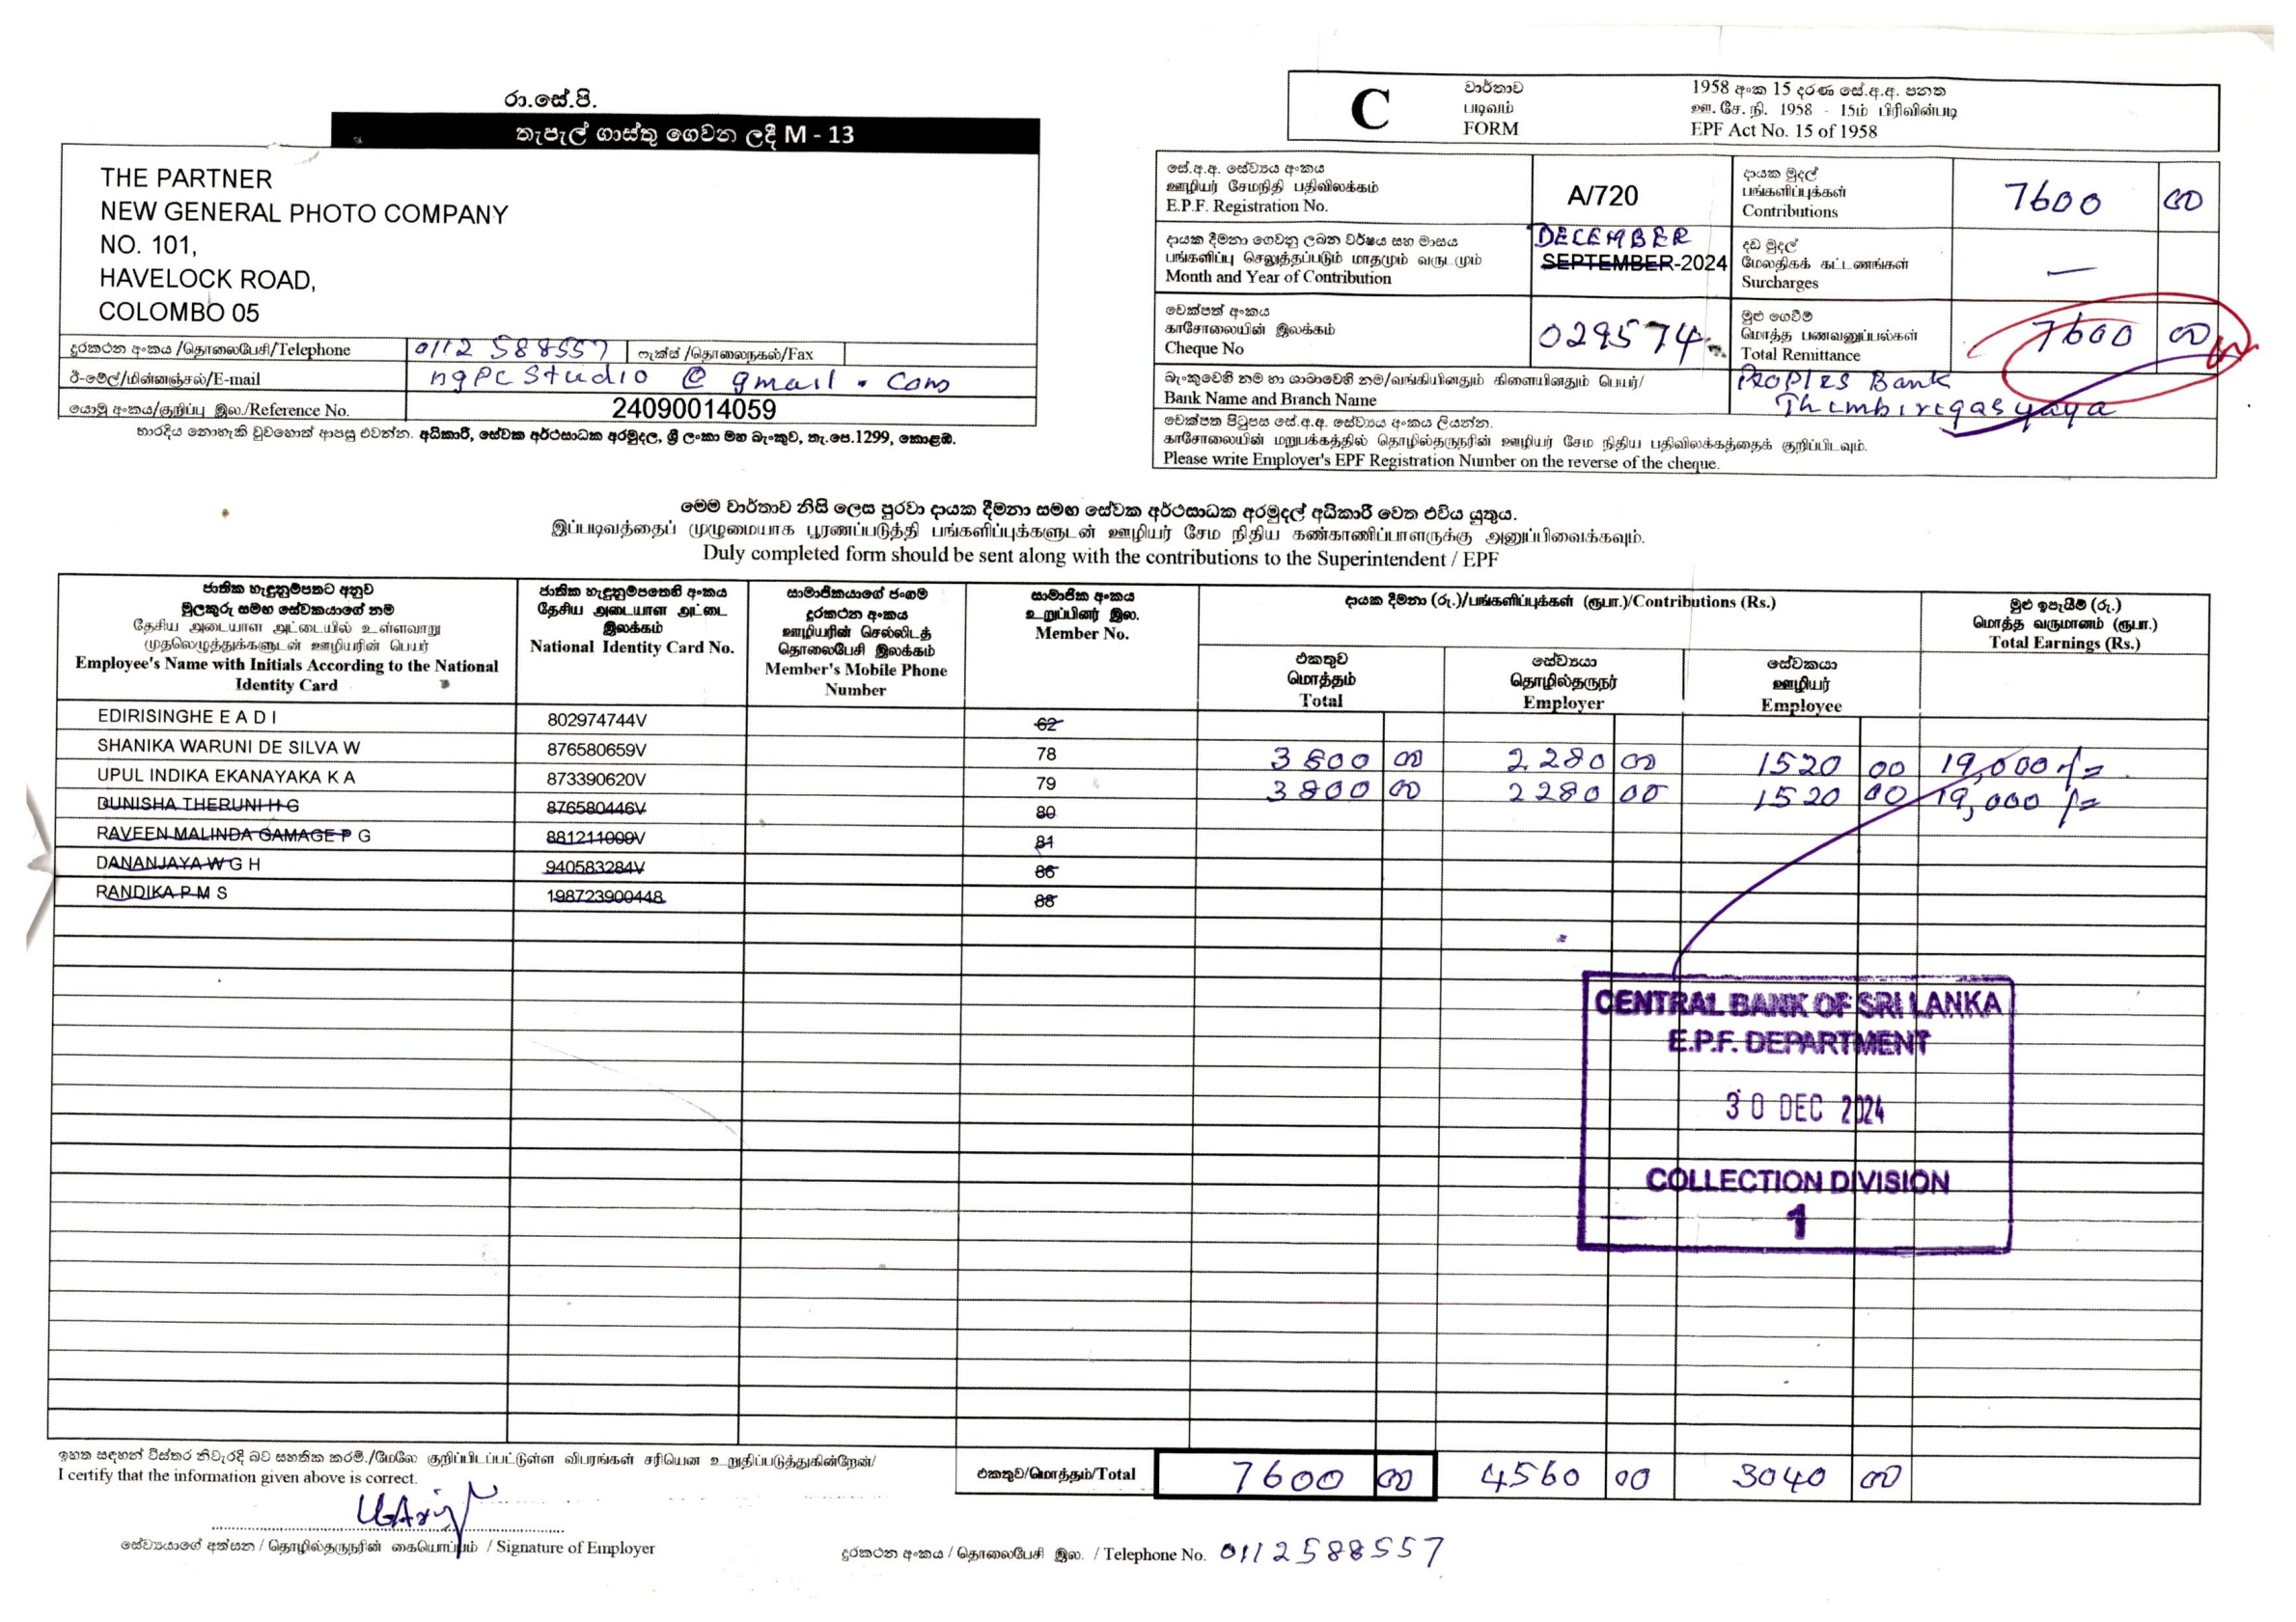 රා.සේ.පි.
තැපැල් ගාස්තු ගෙවන ලදී M - 13
THE PARTNER
NEW GENERAL PHOTO COMPANY
NO. 101,
HAVELOCK ROAD,
COLOMBO 05
දුරකථන අංකය /தொலைபேசி/Telephone 0112 588557 ෆැක්ස් /தொலைநகல்/Fax
ඊ-මේල්/மின்னஞ்சல்/E-mail ngpcstudio @ gmail . com
යොමු අංකය/குறிப்பு இல./Reference No. 24090014059
භාරදිය නොහැකි වුවහොත් ආපසු එවන්න. අධිකාරී, සේවක අර්ථසාධක අරමුදල, ශ්‍රී ලංකා මහ බැංකුව, තැ.පෙ.1299, කොළඹ.
C
වාර්තාව
படிவம்
FORM
1958 අංක 15 දරණ සේ.අ.අ. පනත
ஊ. சே. நி. 1958 - 15ம் பிரிவின்படி
EPF Act No. 15 of 1958
සේ.අ.අ. සේව්‍යය අංකය
ஊழியர் சேமநிதி பதிவிலக்கம்
E.P.F. Registration No.
A/720
දායක මුදල්
பங்களிப்புக்கள்
Contributions
7600 00
දායක දීමනා ගෙවනු ලබන වර්ෂය සහ මාසය
பங்களிப்பு செலுத்தப்படும் மாதமும் வருடமும்
Month and Year of Contribution
DECEMBER
SEPTEMBER-2024
දඩ මුදල්
மேலதிகக் கட்டணங்கள்
Surcharges
—
චෙක්පත් අංකය
காசோலையின் இலக்கம்
Cheque No
029574
මුළු ගෙවීම්
மொத்த பணவனுப்பல்கள்
Total Remittance
7600 00
බැංකුවෙහි නම හා ශාඛාවෙහි නම/வங்கியினதும் கிளையினதும் பெயர்/
Bank Name and Branch Name
Peoples Bank
Thimbirigasyaya
චෙක්පත පිටුපස සේ.අ.අ. සේව්‍යය අංකය ලියන්න.
காசோலையின் மறுபக்கத்தில் தொழில்தருநரின் ஊழியர் சேம நிதிய பதிவிலக்கத்தைக் குறிப்பிடவும்.
Please write Employer's EPF Registration Number on the reverse of the cheque.
මෙම වාර්තාව නිසි ලෙස පුරවා දායක දීමනා සමඟ සේවක අර්ථසාධක අරමුදල් අධිකාරී වෙත එවිය යුතුය.
இப்படிவத்தைப் முழுமையாக பூரணப்படுத்தி பங்களிப்புக்களுடன் ஊழியர் சேம நிதிய கண்காணிப்பாளருக்கு அனுப்பிவைக்கவும்.
Duly completed form should be sent along with the contributions to the Superintendent / EPF
ජාතික හැඳුනුම්පතට අනුව
මුලකුරු සමඟ සේවකයාගේ නම
தேசிய அடையாள அட்டையில் உள்ளவாறு
முதலெழுத்துக்களுடன் ஊழியரின் பெயர்
Employee's Name with Initials According to the National
Identity Card
ජාතික හැඳුනුම්පතෙහි අංකය
தேசிய அடையாள அட்டை
இலக்கம்
National Identity Card No.
සාමාජිකයාගේ ජංගම
දුරකථන අංකය
ஊழியரின் செல்லிடத்
தொலைபேசி இலக்கம்
Member's Mobile Phone
Number
සාමාජික අංකය
உறுப்பினர் இல.
Member No.
දායක දීමනා (රු.)/பங்களிப்புக்கள் (ரூபா.)/Contributions (Rs.)
එකතුව
மொத்தம்
Total
සේව්‍යයා
தொழில்தருநர்
Employer
සේවකයා
ஊழியர்
Employee
මුළු ඉපැයීම් (රු.)
மொத்த வருமானம் (ரூபா.)
Total Earnings (Rs.)
EDIRISINGHE E A D I 802974744V 62
SHANIKA WARUNI DE SILVA W 876580659V 78 3800 00 2280 00 1520 00 19,000/=
UPUL INDIKA EKANAYAKA K A 873390620V 79 3800 00 2280 00 1520 00 19,000/=
DUNISHA THERUNI H G 876580446V 80
RAVEEN MALINDA GAMAGE P G 881211009V 81
DANANJAYA W G H 940583284V 86
RANDIKA P M S 198723900448 88
CENTRAL BANK OF SRI LANKA
E.P.F. DEPARTMENT
30 DEC 2024
COLLECTION DIVISION
1
ඉහත සඳහන් විස්තර නිවැරදි බව සහතික කරමි./மேலே குறிப்பிடப்பட்டுள்ள விபரங்கள் சரியென உறுதிப்படுத்துகின்றேன்/
I certify that the information given above is correct.
එකතුව/மொத்தம்/Total 7600 00 4560 00 3040 00
සේව්‍යයාගේ අත්සන / தொழில்தருநரின் கையொப்பம் / Signature of Employer
දුරකථන අංකය / தொலைபேசி இல. / Telephone No. 0112588557